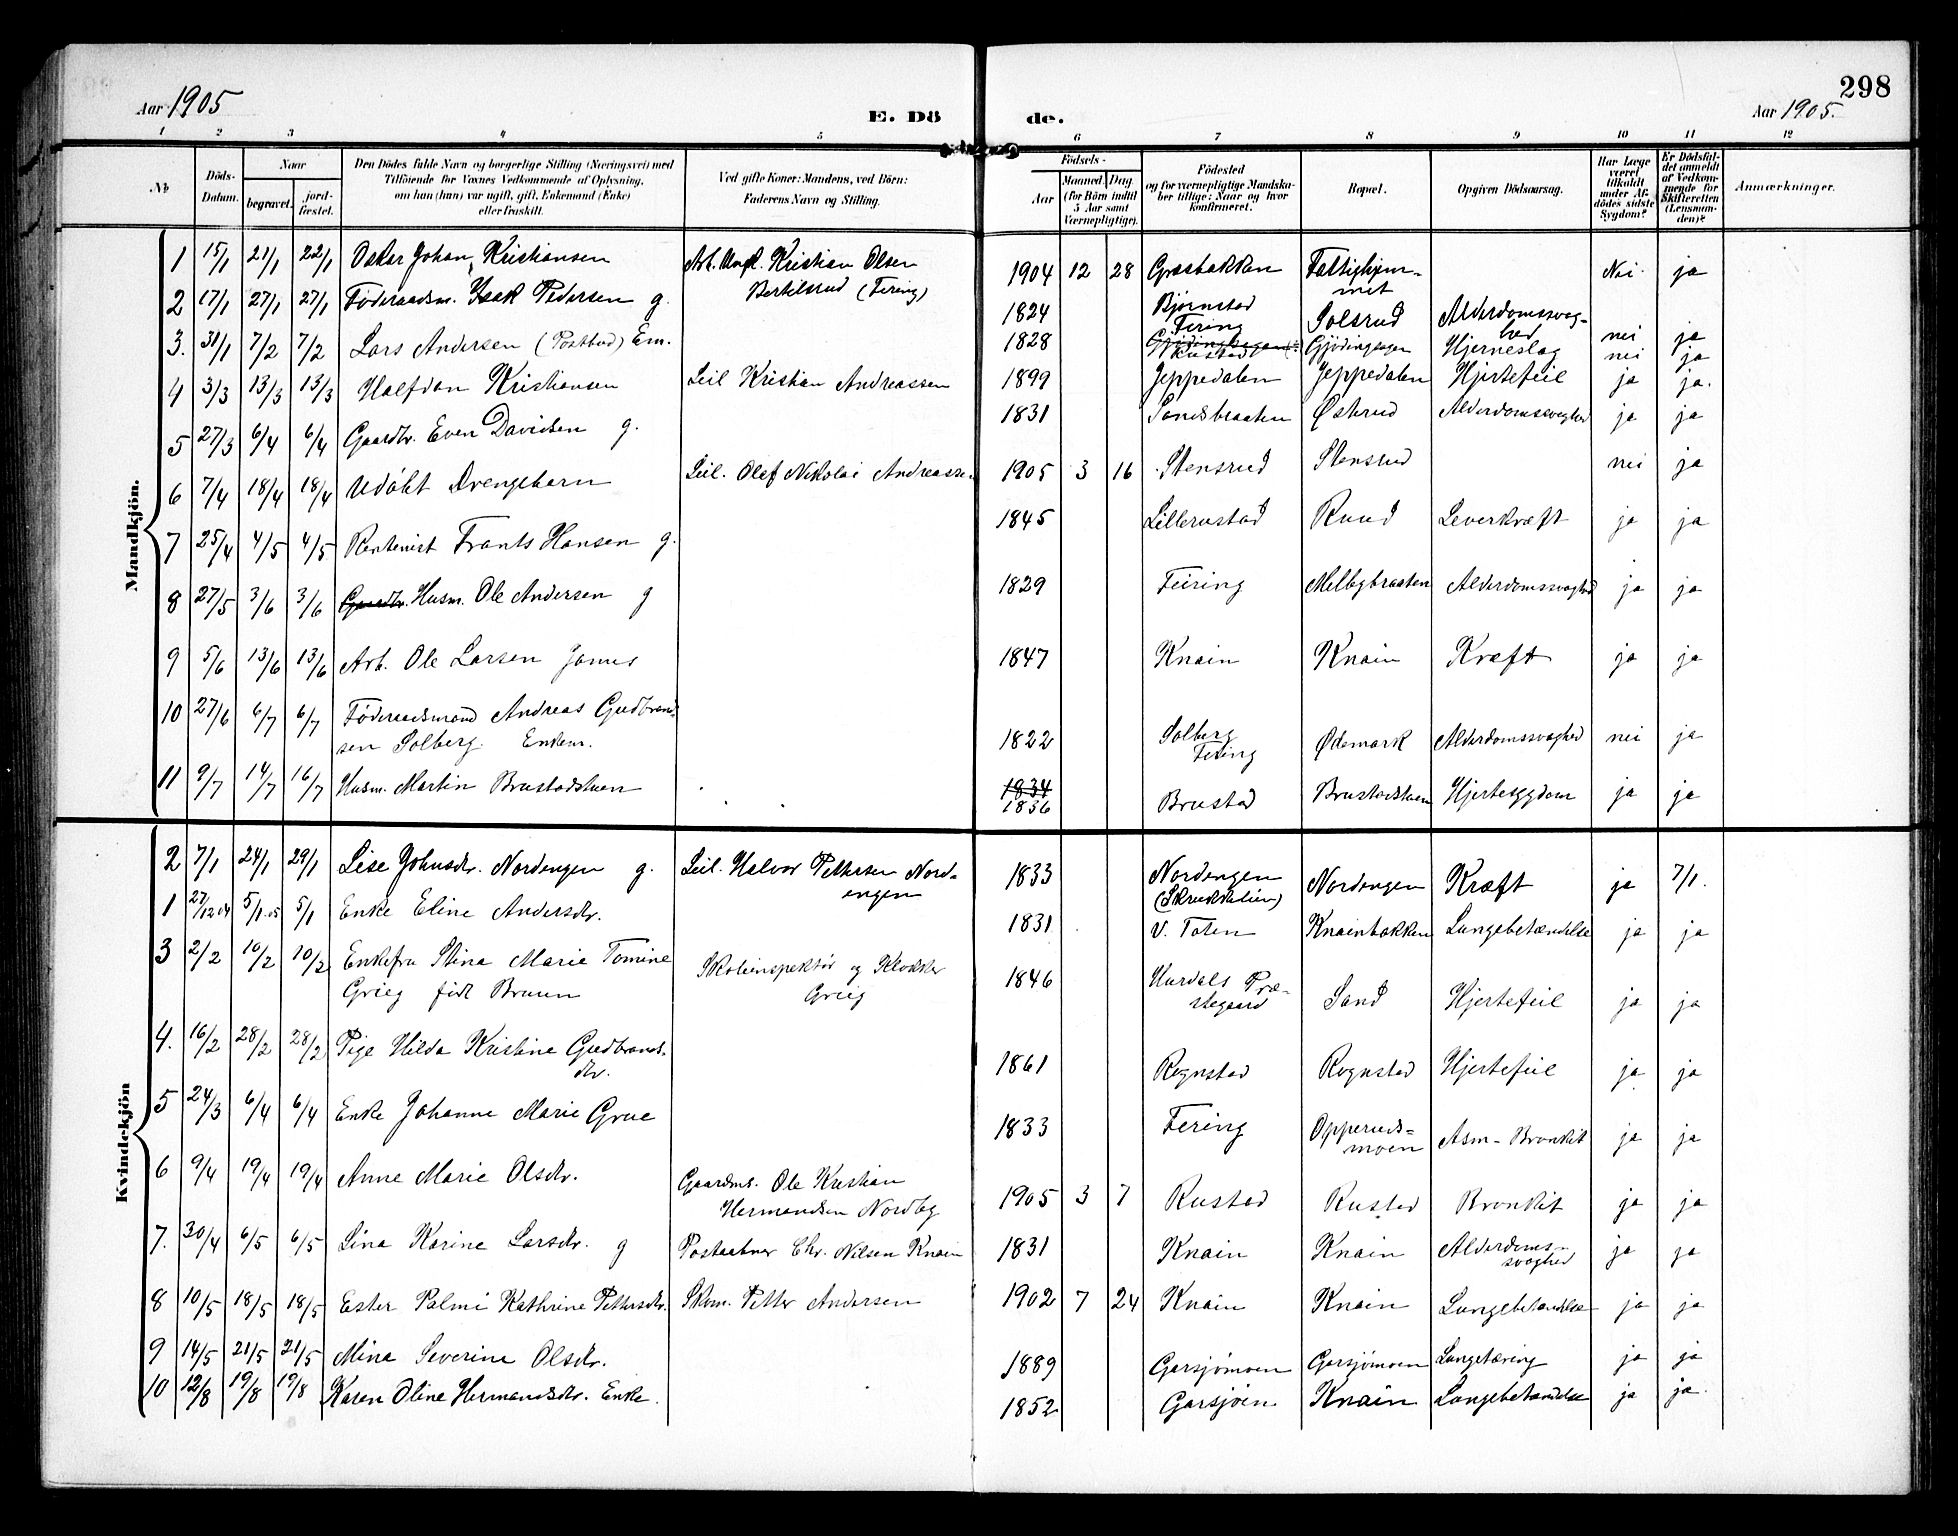 298
Aar 1905
E. Dö
de.
Aar 1905.
1 2 3 4 5 6 7 8 9 10 11 12
No
Döds-
Datum.
Naar
begravet.
jord-
fæstet.
Den Dödes fulde Navn og borgerlige Stilling (Næringsvei) med
Tilföiende for Voxnes Vedkommende af Oplysning,
om han (hun) var ugift, gift, Enkemand (Enke)
eller fraskilt.
Ved gifte Koner: Mandens, ved Börn:
Faderens Navn og Stilling.
Födsels-
Aar
Maaned. Dag
(for Börn indtil
5 Aar samt
Værnepligtige).
Födested
og for værnepligtige Mandska-
ber tillige: Naar og hvor
konfirmeret.
Bopæl.
Opgiven Dödsaarsag.
Har Læge
været
tilkaldt
under Af-
dödes sidste
Sygdom?
Er Dödsfal-
det anmeldt
af Vedkom-
mende for
Skifteretten
(Lensman-
den)?
Anmærkninger.
Mandkjön.
1 15/1 21/1 22/1 Oskar Johan Kristiansen Arb. Ungk. Kristian Olsen
Bertilsrud (Fering) 1904 12 28 Græsbakken Fattighjem-
met Nei. ja
2 17/1 27/1 27/1 Föderaadsm. Isak Pedersen g. 1824 Björnstad
Fering Solsrud Alderdomssvag-
hed nei ja
3. 31/1 7/2 7/2 Lars Andersen (Postbud) Em. 1828 Rustad Gjödingsagen Hjerneslag nei ja
4 3/3 13/3 13/3 Halfdan Kristiansen Leil Kristian Andreassen 1899 Jeppedalen Jeppedalen Hjertefeil ja ja.
5 27/3 6/4 6/4 Gaardbr. Even Davidsen g. 1831 Sandsbraaten Østrud Alderdomssvaghed ja ja
6 7/4 18/4 18/4 Udöbt Drengebarn Leil. Olaf Nikolai Andreassen 1905 3 16 Stensrud Stensrud nei ja
7 25/4 4/5 4/5 Rentenist Frants Hansen g. 1845 Lillerustad Ruud Leverkræft ja ja
8 27/5 3/6 3/6 Gaardbr. Husm. Ole Andersen g 1829 Feiring Melbybraaten Alderdomssvaghed ja ja
9 5/6 13/6 13/6 Arb. Ole Larsen 1847 Knain Knain Kræft ja ja
10 27/6 6/7 6/7 Föderaadsmand Andreas Gudbrand-
sen Solberg. Enkem. 1822 Solberg
Fering Ødemark Alderdomssvaghed nei ja
11 9/7 14/7 16/7 Husm. Martin Brustadstuen 1834
1836 Brustad Brustadstuen Hjertesygdom ja ja
Kvindekjön
2 7/1 24/1 29/1 Lise Johnsdtr. Nordengen g. Leil. Halvor Pettersen Nord-
engen 1833 Nordengen
(Skrukkelien) Nordengen Kræft ja 7/1.
1 27/12 04 5/1 05 5/1 Enke Eline Andersdtr. 1831 V. Toten Knainbakken Lungebetændelse ja ja
3 2/2 10/2 10/2 Enkefru Stina Marie Tomine
Grieg födt Bruun Skoleinspektör og Klokker
Grieg 1846 Hurdals Præ-
stegaard Sand Hjertefeil ja ja
4. 16/2 28/2 28/2 Pige Hilda Kristine Gudbrands-
dtr. 1861 Rognstad Rognstad Hjertefeil ja ja
5 24/3 6/4 6/4 Enke Johanne Marie Grue 1833 Fering Opperuds-
moen Asm-Bronkit ja ja
6 9/4 19/4 19/4 Anne Marie Olsdtr. Gaardms. Ole Kristian
Hermandsen Nordby 1905 3 7 Rustad Rustad Bronkit ja ja
7. 30/4 6/5 6/5 Lina Karine Larsdtr. g Postaabner Chr. Nilsen Knain 1831 Knain Knain Alderdoms-
svaghed ja ja
8 10/5 18/5 18/5 Ester Palmi Kathrine Pettersdtr. Skom. Petter Andersen 1902 7 24 Knain Knain Lungebetændelse ja ja
9 14/5 21/5 21/5 Mina Severine Olsdtr. 1889 Garsjömoen Garsjömoen Lungetæring ja ja
10 12/8 19/8 19/8 Karen Oline Hermandsdtr. Enke. 1852 Garsjöen Knain Lungebetændelse ja ja.